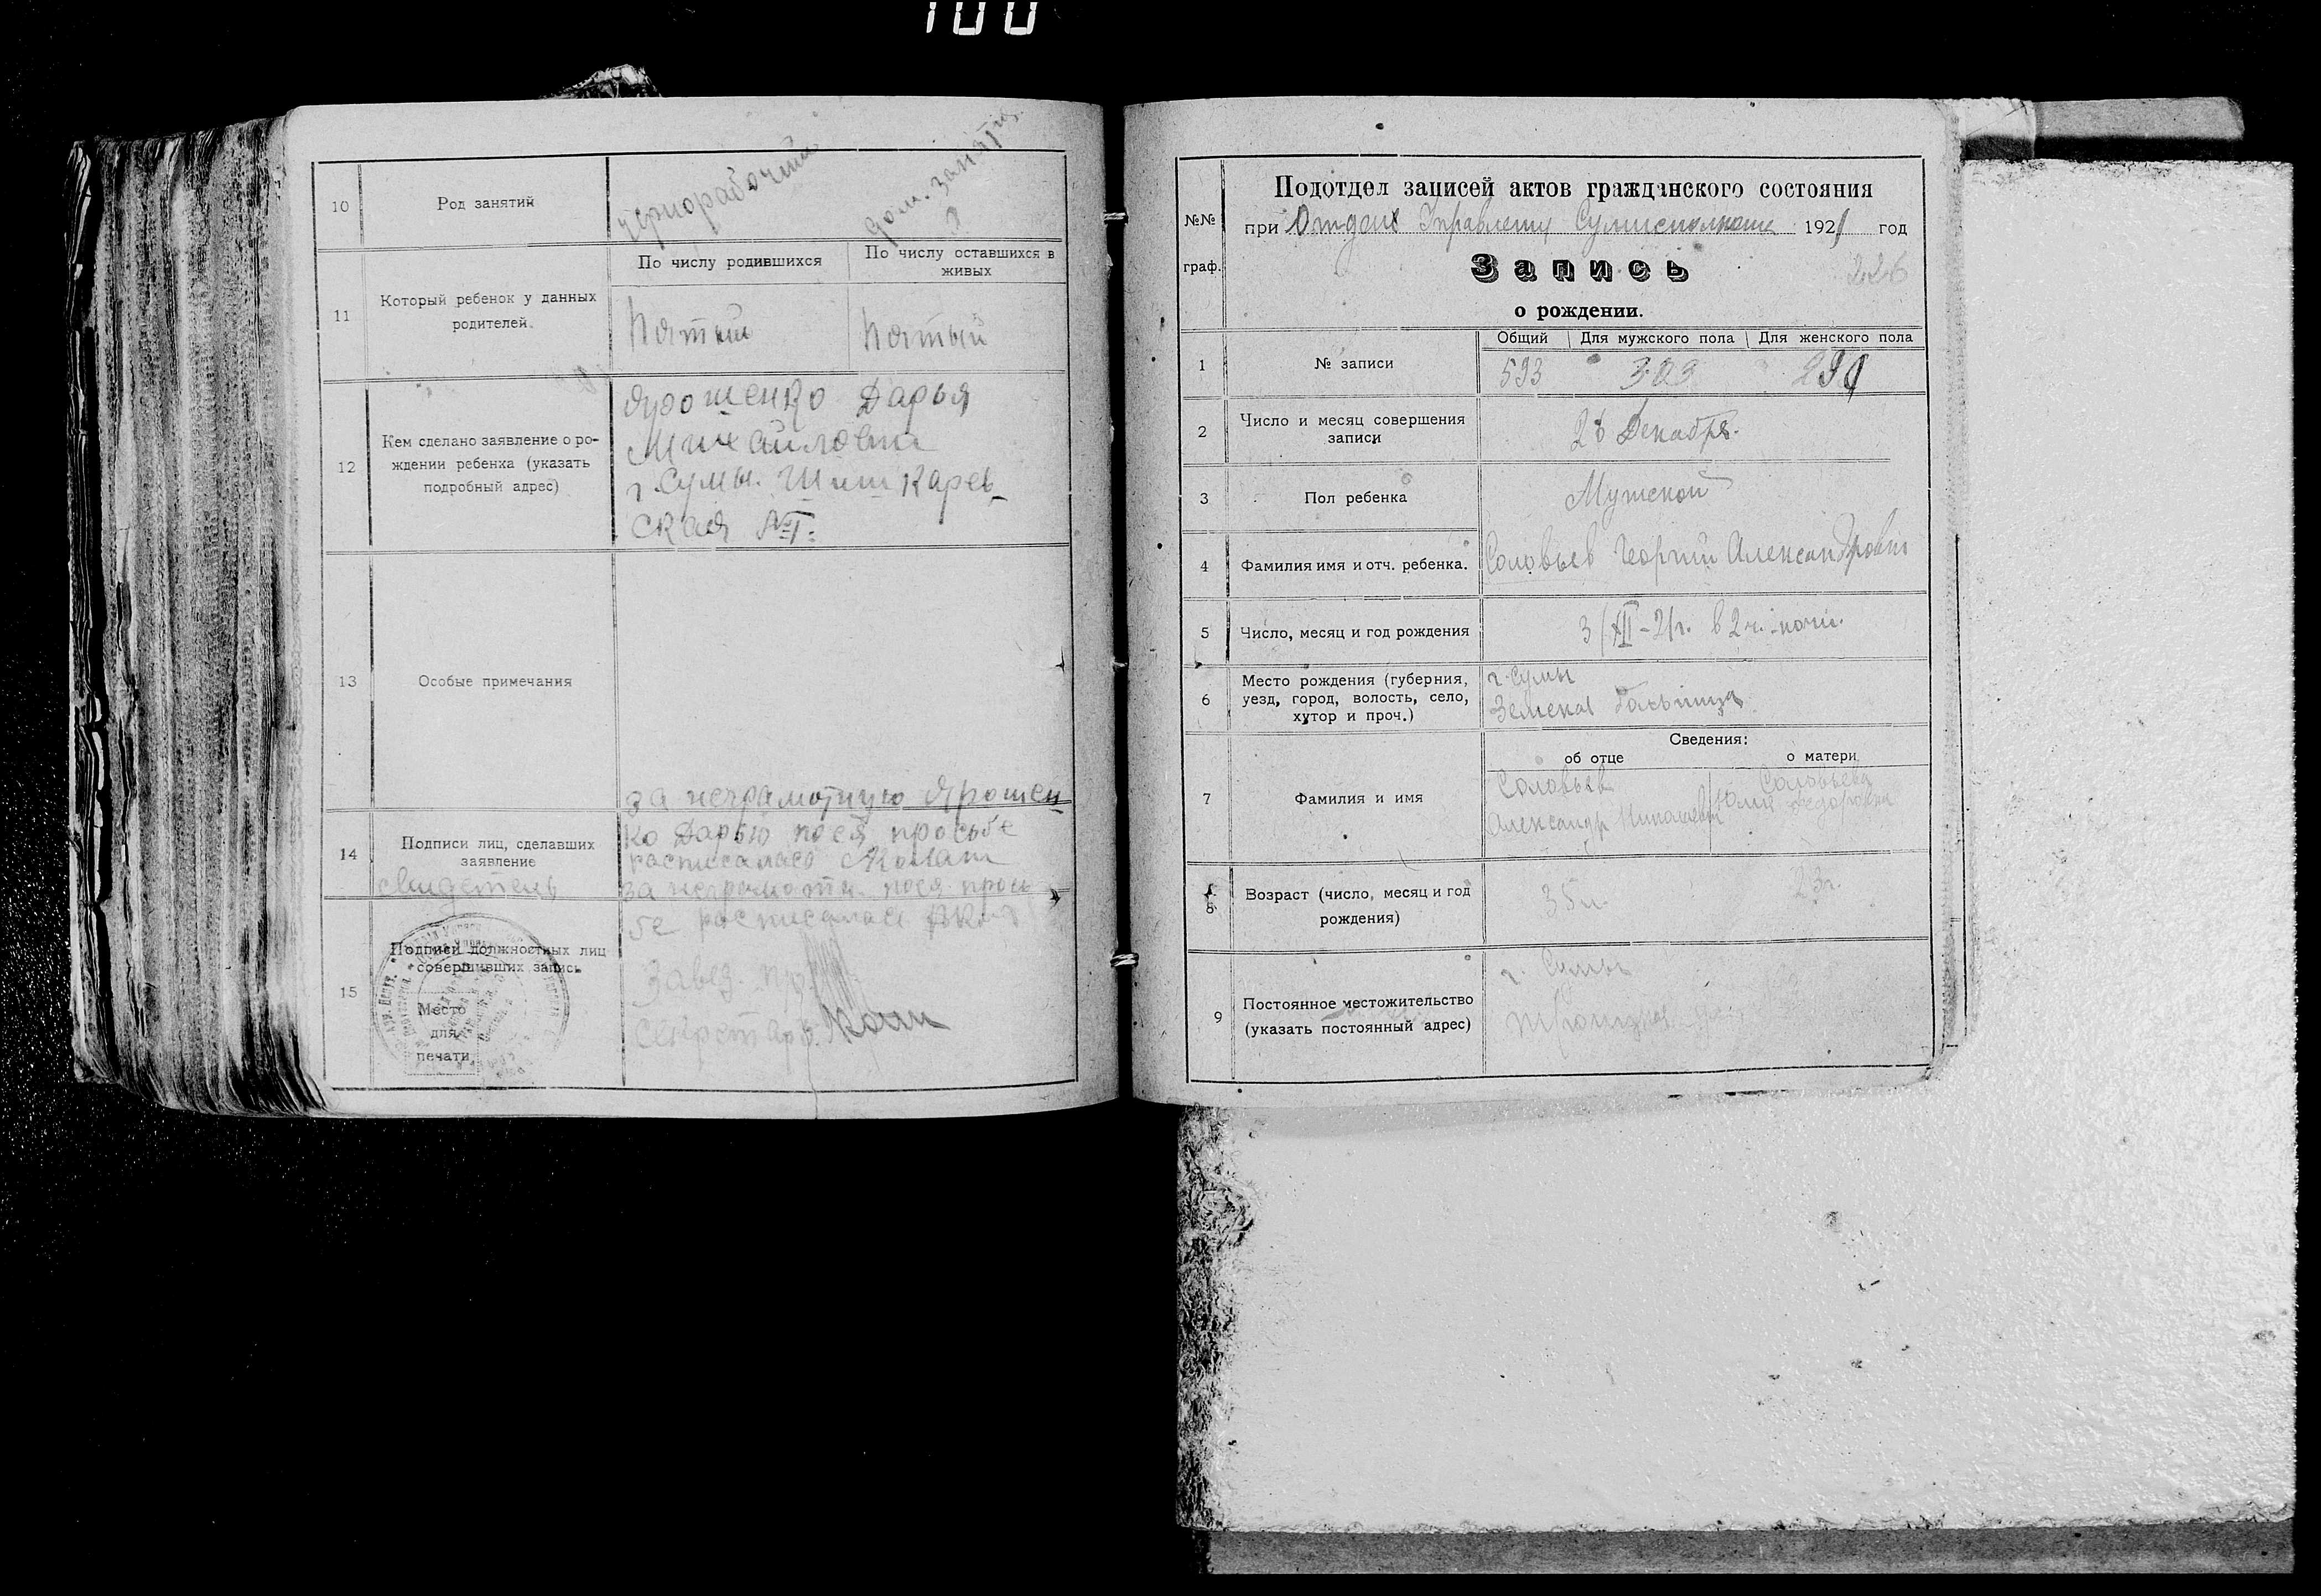 100
10
Род занятий
чернорабочий
дом. занятия
По числу родившихся
По числу оставшихся в
живых
11
Который ребенок у данных
родителей.
Пятый
Пятый
12
Кем сделано заявление о ро-
ждении ребенка (указать
подробный адрес)
Дарья
Михайловна
г. Сумы. Шишкарев-
ская №1.
13
Особые примечания
за неграмотную Ярошен
14
Подписи лиц, сделавших
заявление
свидетель
ко Дарью по ея просьбе
расписалась
за неграмотн. по ея прось
бе расписалась
15
Подписи должностных лиц
совершивших запись
Место
для
печати
Завед.
Секретарь
№№
граф.
Подотдел записей актов гражданского состояния
при Отделе Управления Сумисполкома 1921 год
Запись
226
о рождении.
1
№ записи
Общий
Для мужского пола
Для женского пола
593
303
290
2
Число и месяц совершения
записи
Декабря.
3
Пол ребенка
Мужской
4
Фамилия имя и отч. ребенка.
Соловьев Георгий Александрович
5
Число, месяц и год рождения
3/XII-21г. в 2 ч. ночи.
6
Место рождения (губерния,
уезд, город, волость, село,
хутор и проч.)
г. Сумы
Земская больница
Сведения:
об отце
о матери
7
Фамилия и имя
Соловьев
Александр Николаевич
Соловьева
Юлия Федоровна
8
Возраст (число, месяц и год
рождения)
35 л.
23 г.
9
Постоянное местожительство
(указать постоянный адрес)
г. Сумы